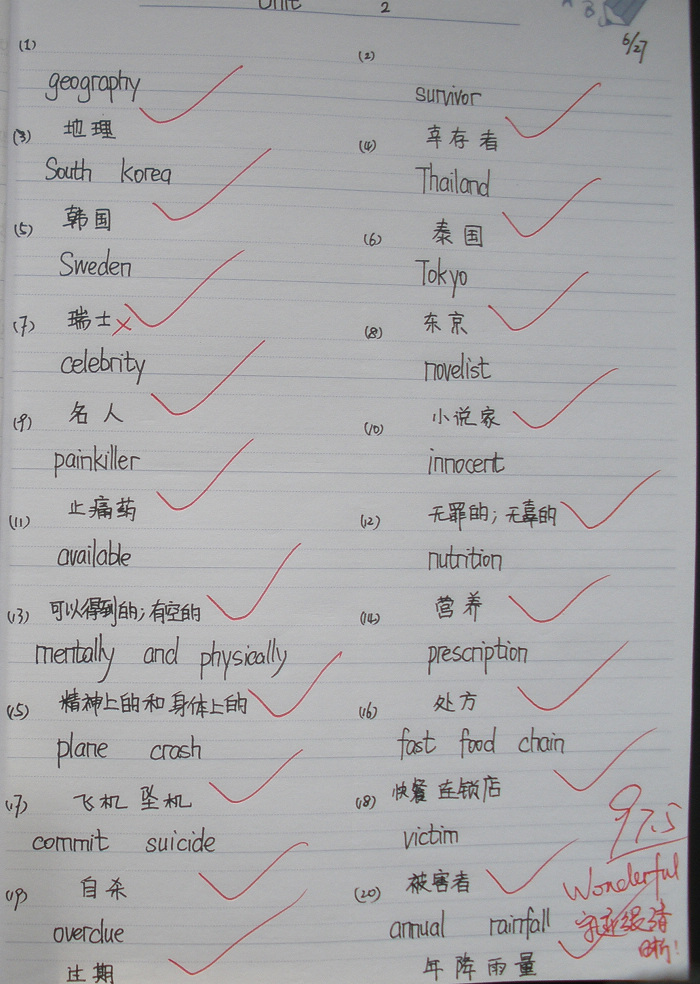 Unit 2
6/27
(1)
geography
地理
(2)
survivor
幸存者
(3)
South korea
韩国
(4)
Thailand
泰国
(5)
Sweden
瑞士
(6)
Tokyo
东京
(7)
celebrity
名人
(8)
novelist
小说家
(9)
painkiller
止痛药
(10)
innocent
无罪的;无辜的
(11)
available
可以得到的;有空的
(12)
nutrition
营养
(13)
mentally and physically
精神上的和身体上的
(14)
prescription
处方
(15)
plane crash
飞机坠机
(16)
fast food chain
快餐连锁店
(17)
commit suicide
自杀
(18)
victim
被害者
(19)
overdue
过期
(20)
annual rainfall
年降雨量
97.5
Wonderful
字迹很清
晰!